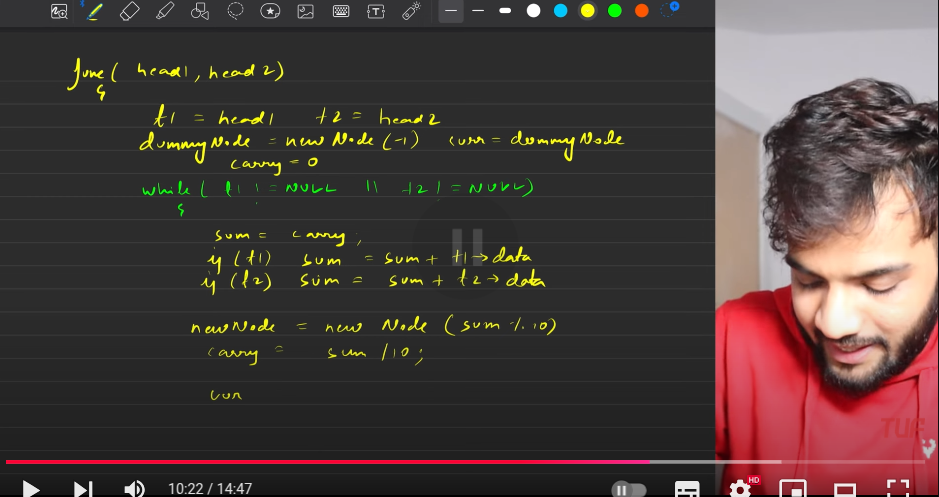 func( head1, head2)
{
t1 = head1 t2 = head2
dummyNode = new Node(-1) curr = dummyNode
carry = 0
while( t1 != NULL || t2 != NULL)
{
sum = carry;
if (t1) sum = sum + t1→data
if (t2) sum = sum + t2→data
newNode = new Node (sum % 10)
carry = sum / 10;
cur
TUF
10:22 / 14:47
HD